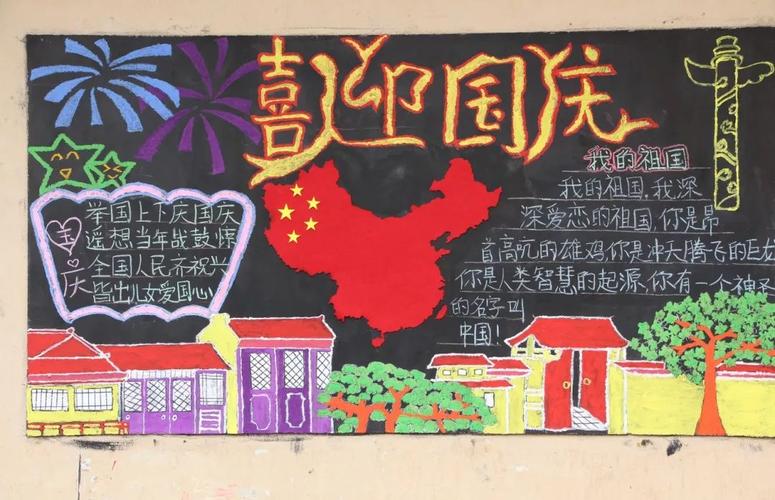 喜迎国庆
国庆
举国上下庆国庆
遥想当年战鼓惊
全国人民齐祝兴
皆出儿女爱国心
我的祖国
我的祖国,我深
深爱恋的祖国,你是昂
首高吭的雄鸡,你是冲天腾飞的巨龙
你是人类智慧的起源,你有一个神圣
的名字叫
中国!